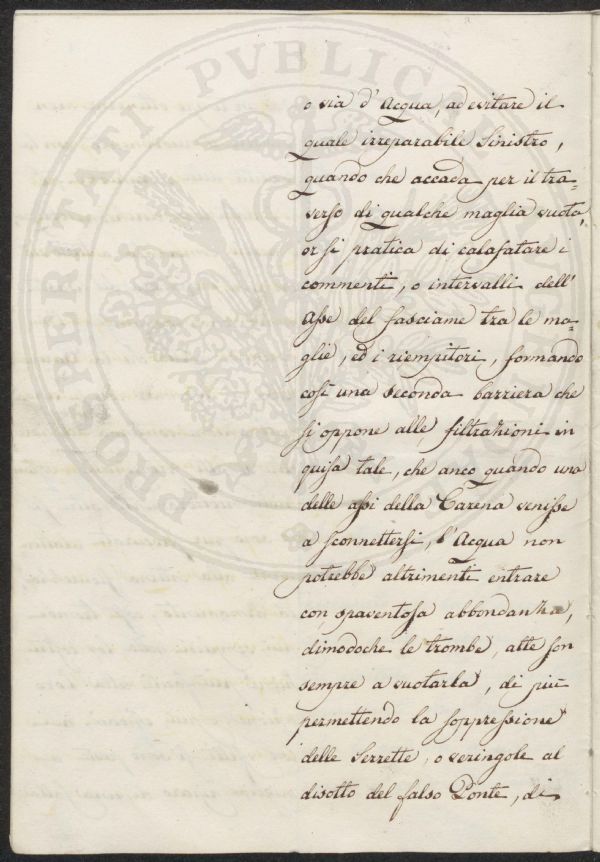 o via d'Acqua, ad evitare il
quale irreparabile Sinistro,
quando che accada per il tra=
verso di qualche maglia vuota,
or si pratica di calafatare i
commenti, o intervalli dell'
Asse del fasciame tra le ma=
glie, ed i riempitori, formando
così una seconda barriera che
si oppone alle filtrazioni in
guisa tale, che anco quando una
delle assi della Carena venisse
a sconnettersi, l'Acqua non
potrebbe altrimenti entrare
con spaventosa abbondanza,
dimodoche le trombe, atte son
sempre a vuotarla, di più
permettendo la soppressione
delle Serrette, o veringole al
disotto del falso Ponte, di
PROSPERITATI PVBLICAE